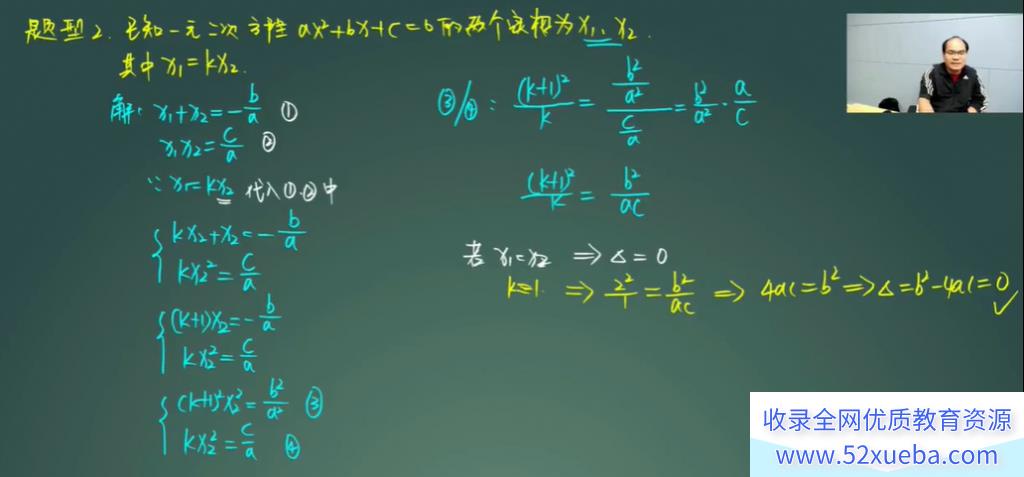 题型2. 已知一元二次方程 ax²+bx+c=0的两个实根为x₁、x₂.
其中 x₁=kx₂.
解: x₁+x₂=-b/a ①
x₁x₂=c/a ②
∵ x₁=kx₂ 代入①.②中
{ kx₂+x₂=-b/a
kx₂²=c/a
{ (k+1)x₂=-b/a
kx₂²=c/a
{ (k+1)²x₂²=b²/a² ③
kx₂²=c/a ④
③/④: (k+1)²/k = (b²/a²)/(c/a) = b²/a² · a/c
(k+1)²/k = b²/ac
若 x₁=x₂ ⇒ Δ=0
k=1. ⇒ 2²/1 = b²/ac ⇒ 4ac=b² ⇒ Δ=b²-4ac=0 ✓
收录全网优质教育资源
www.52xueba.com